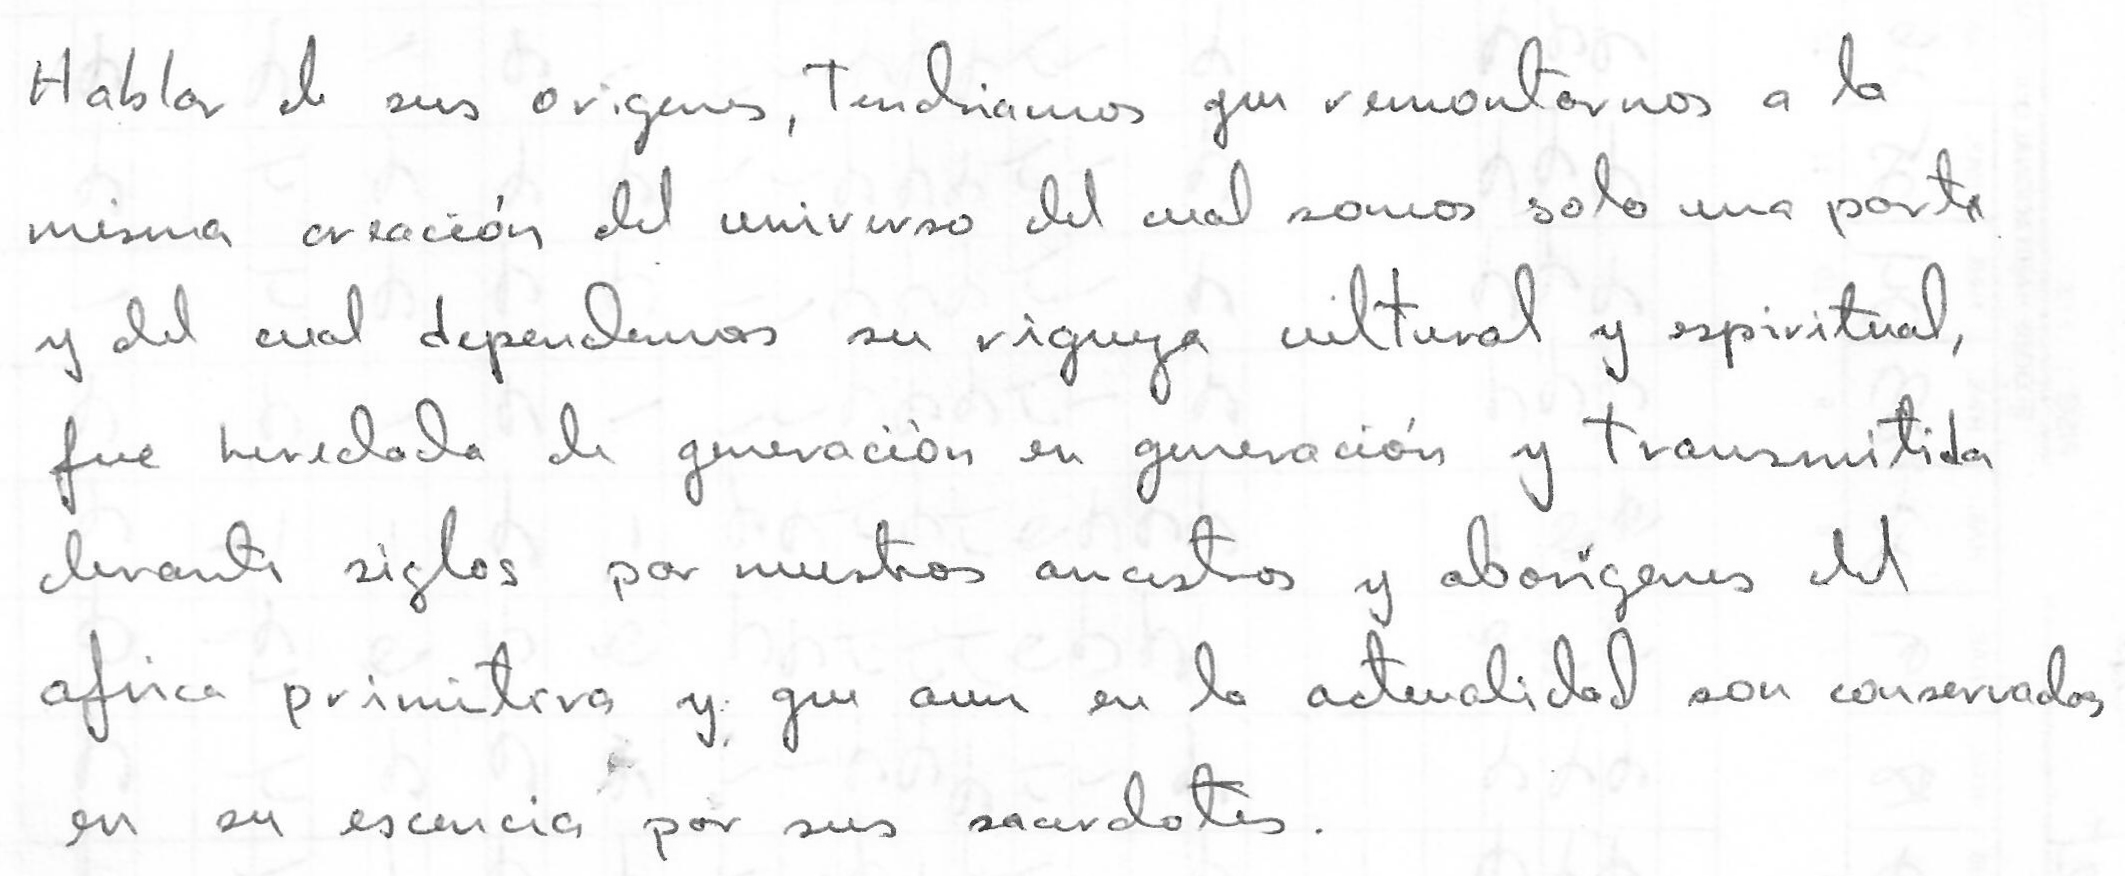 Hablar de sus origenes, Tendriamos que remontarnos a la
misma creación del universo del cual somos solo una parte
y del cual dependemos su riqueza cultural y espiritual,
fue heredada de generación en generación y transmitida
durante siglos por nuestros ancestros y aborígenes del
africa primitiva y que aun en la actualidad son conservados
en su escencia por sus sacerdotes.